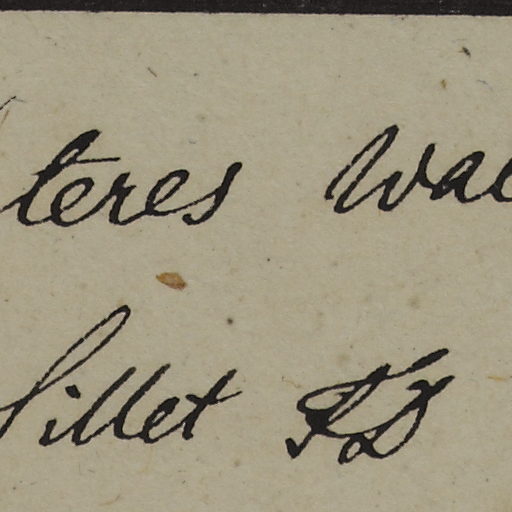 teres Wal
Sillet